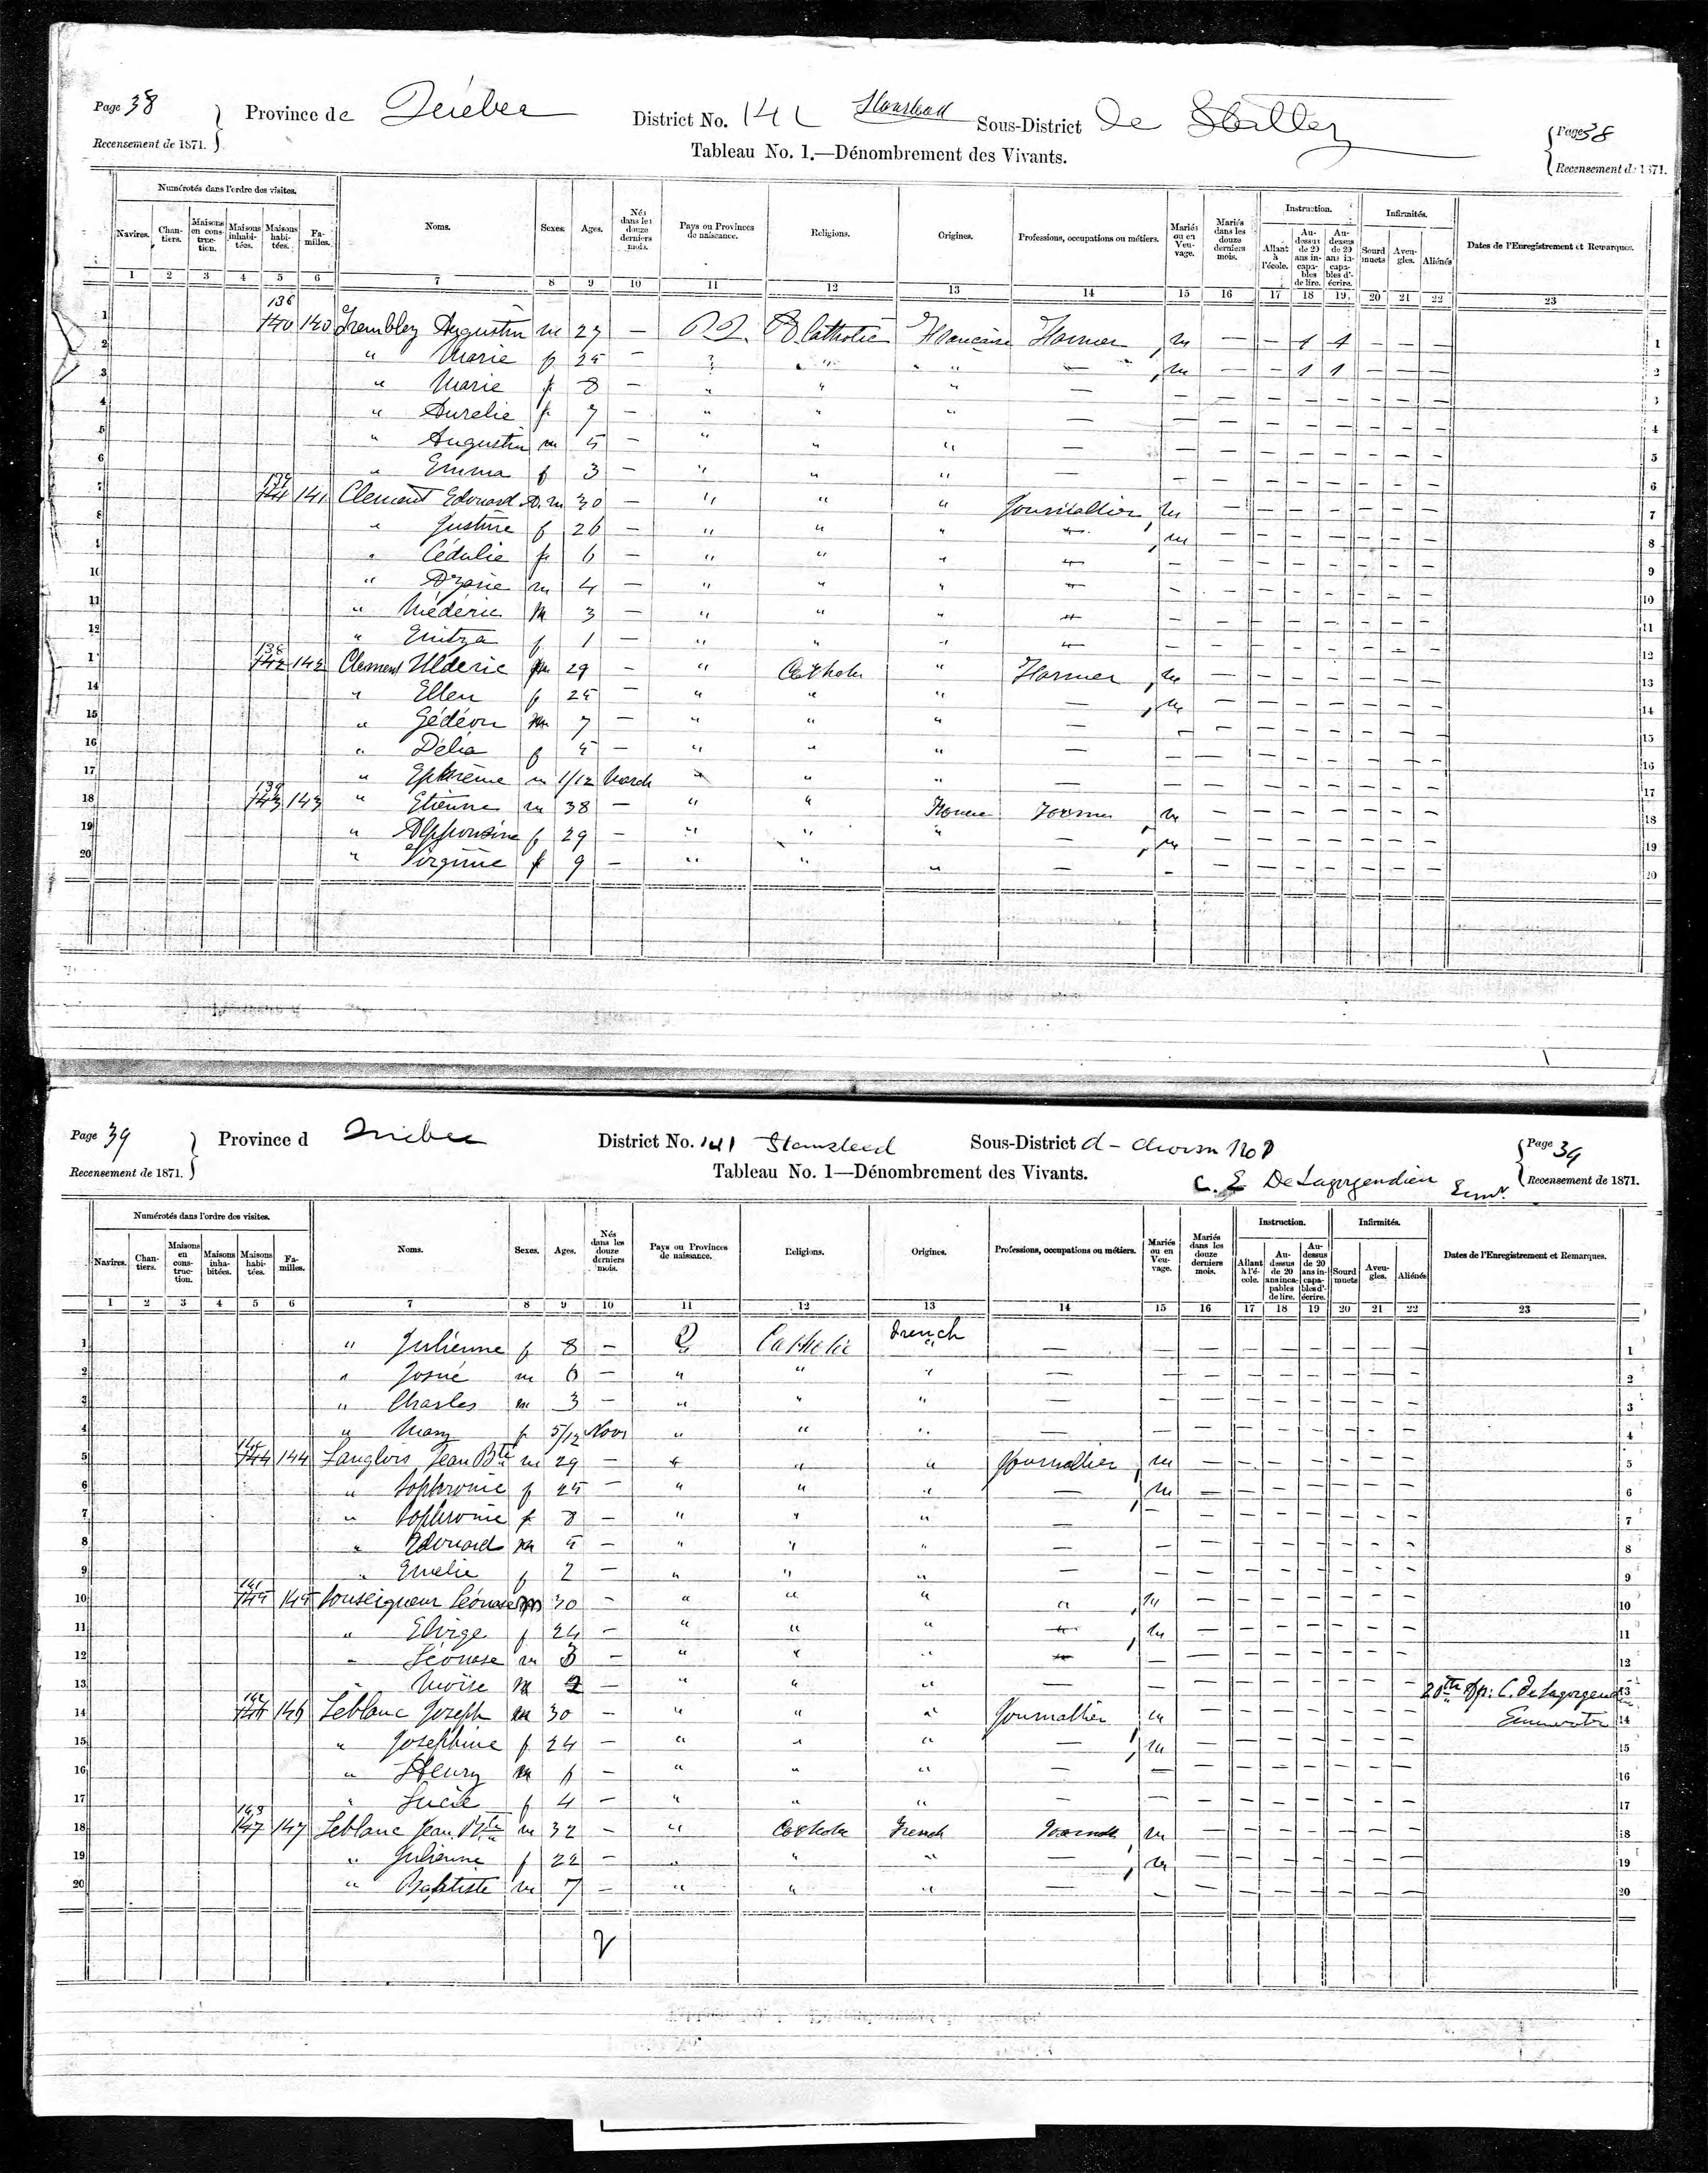 Page 38
Province de Québec
District No. 141 Stanstead
Sous-District de
Page 38
Recensement de 1871.
Tableau No. 1.—Dénombrement des Vivants.
Recensement de 1871.
Numérotés dans l'ordre des visites.
Instruction.
Infirmités.
Navires. Chantiers. Maisons en construction. Maisons inhabitées. Maisons habitées. Familles. Noms. Sexes. Ages. Nés dans les douze derniers mois. Pays ou Provinces de naissance. Religions. Origines. Professions, occupations ou métiers. Mariés ou en Veuvage. Mariés dans les douze derniers mois. Allant à l'école. Au-dessus de 20 ans incapables de lire. Au-dessus de 20 ans incapables d'écrire. Sourd muets Aveugles. Aliénés Dates de l'Enregistrement et Remarques.
1 2 3 4 5 6 7 8 9 10 11 12 13 14 15 16 17 18 19 20 21 22 23
136
1 140 140 Trembley Augustin m 27 — Catholic Française Farmer m — — 1 1 — — — 1
2 " Marie f 25 — " " " — m — — 1 1 — — — 2
3 " Marie f 8 — " " " — — — — — — — — — 3
4 " Aurelie f 7 — " " " — — — — — — — — — 4
5 " Augustin m 5 — " " " — — — — — — — — — 5
6 " Emma f 3 — " " " — — — — — — — — — 6
137
7 141 141 Clement Edouard m 30 — " " " Journallier m — — — — — — — 7
8 " Justine f 26 — " " " — m — — — — — — — 8
9 " Cédulie f 6 — " " " — — — — — — — — — 9
10 " Azarie m 4 — " " " — — — — — — — — — 10
11 " Médéric m 3 — " " " — — — — — — — — — 11
12 " f 1 — " " " — — — — — — — — — 12
138
13 142 142 Clement Ulderic m 29 — " Catholic " Farmer m — — — — — — — 13
14 " Ellen f 25 — " " " — m — — — — — — — 14
15 " Gédéon m 7 — " " " — — — — — — — — — 15
16 " Délia f 5 — " " " — — — — — — — — — 16
17 " Ephrème m 1/12 March " " " — — — — — — — — — 17
139
18 143 143 " Etienne m 38 — " " m — — — — — — — 18
19 " Alphonsine f 29 — " " " — m — — — — — — — 19
20 " Virginie f 9 — " " " — — — — — — — — — 20
Page 39
Province d Québec
District No. 141 Stanstead
Sous-District d - division No 1
Page 39
Recensement de 1871.
Tableau No. 1—Dénombrement des Vivants.
C. E DeLagorgendien Enumr.
Recensement de 1871.
Numérotés dans l'ordre des visites.
Instruction.
Infirmités.
Navires. Chantiers. Maisons en construction. Maisons inhabitées. Maisons habitées. Familles. Noms. Sexes. Ages. Nés dans les douze derniers mois. Pays ou Provinces de naissance. Religions. Origines. Professions, occupations ou métiers. Mariés ou en Veuvage. Mariés dans les douze derniers mois. Allant à l'école. Au-dessus de 20 ans incapables de lire. Au-dessus de 20 ans incapables d'écrire. Sourd muets Aveugles. Aliénés Dates de l'Enregistrement et Remarques.
1 2 3 4 5 6 7 8 9 10 11 12 13 14 15 16 17 18 19 20 21 22 23
1 " Julienne f 8 — Q Catholic French — — — — — — — — — 1
2 " Josué m 6 — " " " — — — — — — — — — 2
3 " Charles m 3 — " " " — — — — — — — — — 3
4 " Mary f 5/12 Nov " " " — — — — — — — — — 4
140
5 144 144 Langlois Jean Bte m 29 — " " " Journallier m — — — — — — — 5
6 " Sophronie f 25 — " " " — m — — — — — — — 6
7 " Sophronie f 8 — " " " — — — — — — — — — 7
8 " Edouard m 5 — " " " — — — — — — — — — 8
9 " Emelie f 2 — " " " — — — — — — — — — 9
141
10 145 145 m 30 — " " " " m — — — — — — — 10
11 " Elvige f 24 — " " " — m — — — — — — — 11
12 " Léonase m 3 — " " " — — — — — — — — — 12
13 " Moïse m 2 — " " " — — — — — — — — — 20th Ap: C. DeLagorgend 13
142
14 146 146 Leblanc Joseph m 30 — " " " Journallier m — — — — — — — 14
15 " Josephine f 24 — " " " — m — — — — — — — 15
16 " Henry m 6 — " " " — — — — — — — — — 16
17 " Lucie f 4 — " " " — — — — — — — — — 17
143
18 147 147 Leblanc Jean Bte m 32 — " Catholic French m — — — — — — — 18
19 " Julienne f 22 — " " " — m — — — — — — — 19
20 " Baptiste m 7 — " " " — — — — — — — — — 20